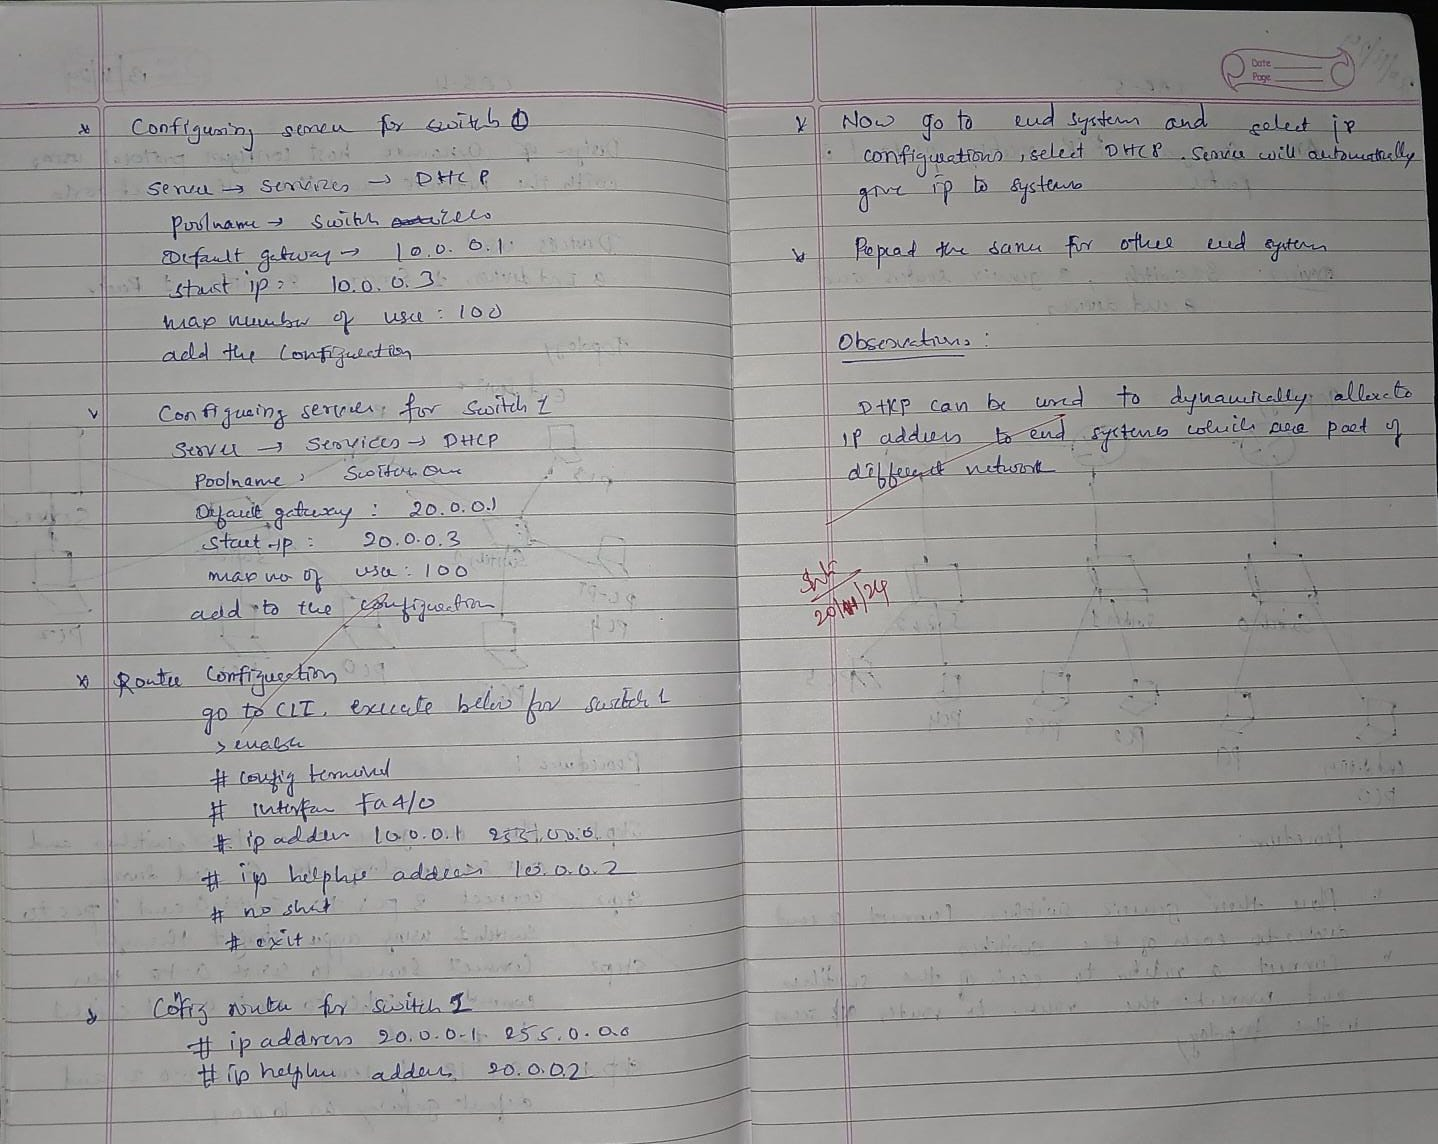 Configuring server for switch 0
Server → Services → DHCP
Poolname → Switch zero
Default gateway → 10.0.0.1
start ip : 10.0.0.3
max number of user : 100
add the configuration
Configuring server for Switch 1
Server → Services → DHCP
Poolname : Switch One
Default gateway : 20.0.0.1
Start ip : 20.0.0.3
max no of user : 100
add to the configuration
Router configuration
go to CLI, execute below for switch 1
> enable
# config terminal
# interface Fa4/0
# ip address 10.0.0.1 255.0.0.0
# ip helpher address 10.0.0.2
# no shut
# exit
Config router for switch 1
# ip address 20.0.0.1 255.0.0.0
# ip helpher address 20.0.0.2
Date
Page
Now go to end system and select ip
configurations, select DHCP. Service will automatically
give ip to systems
Repead the same for other end system
Observations :
DHCP can be used to dynamically allocate
IP address to end systems which are part of
different network
20/11/24